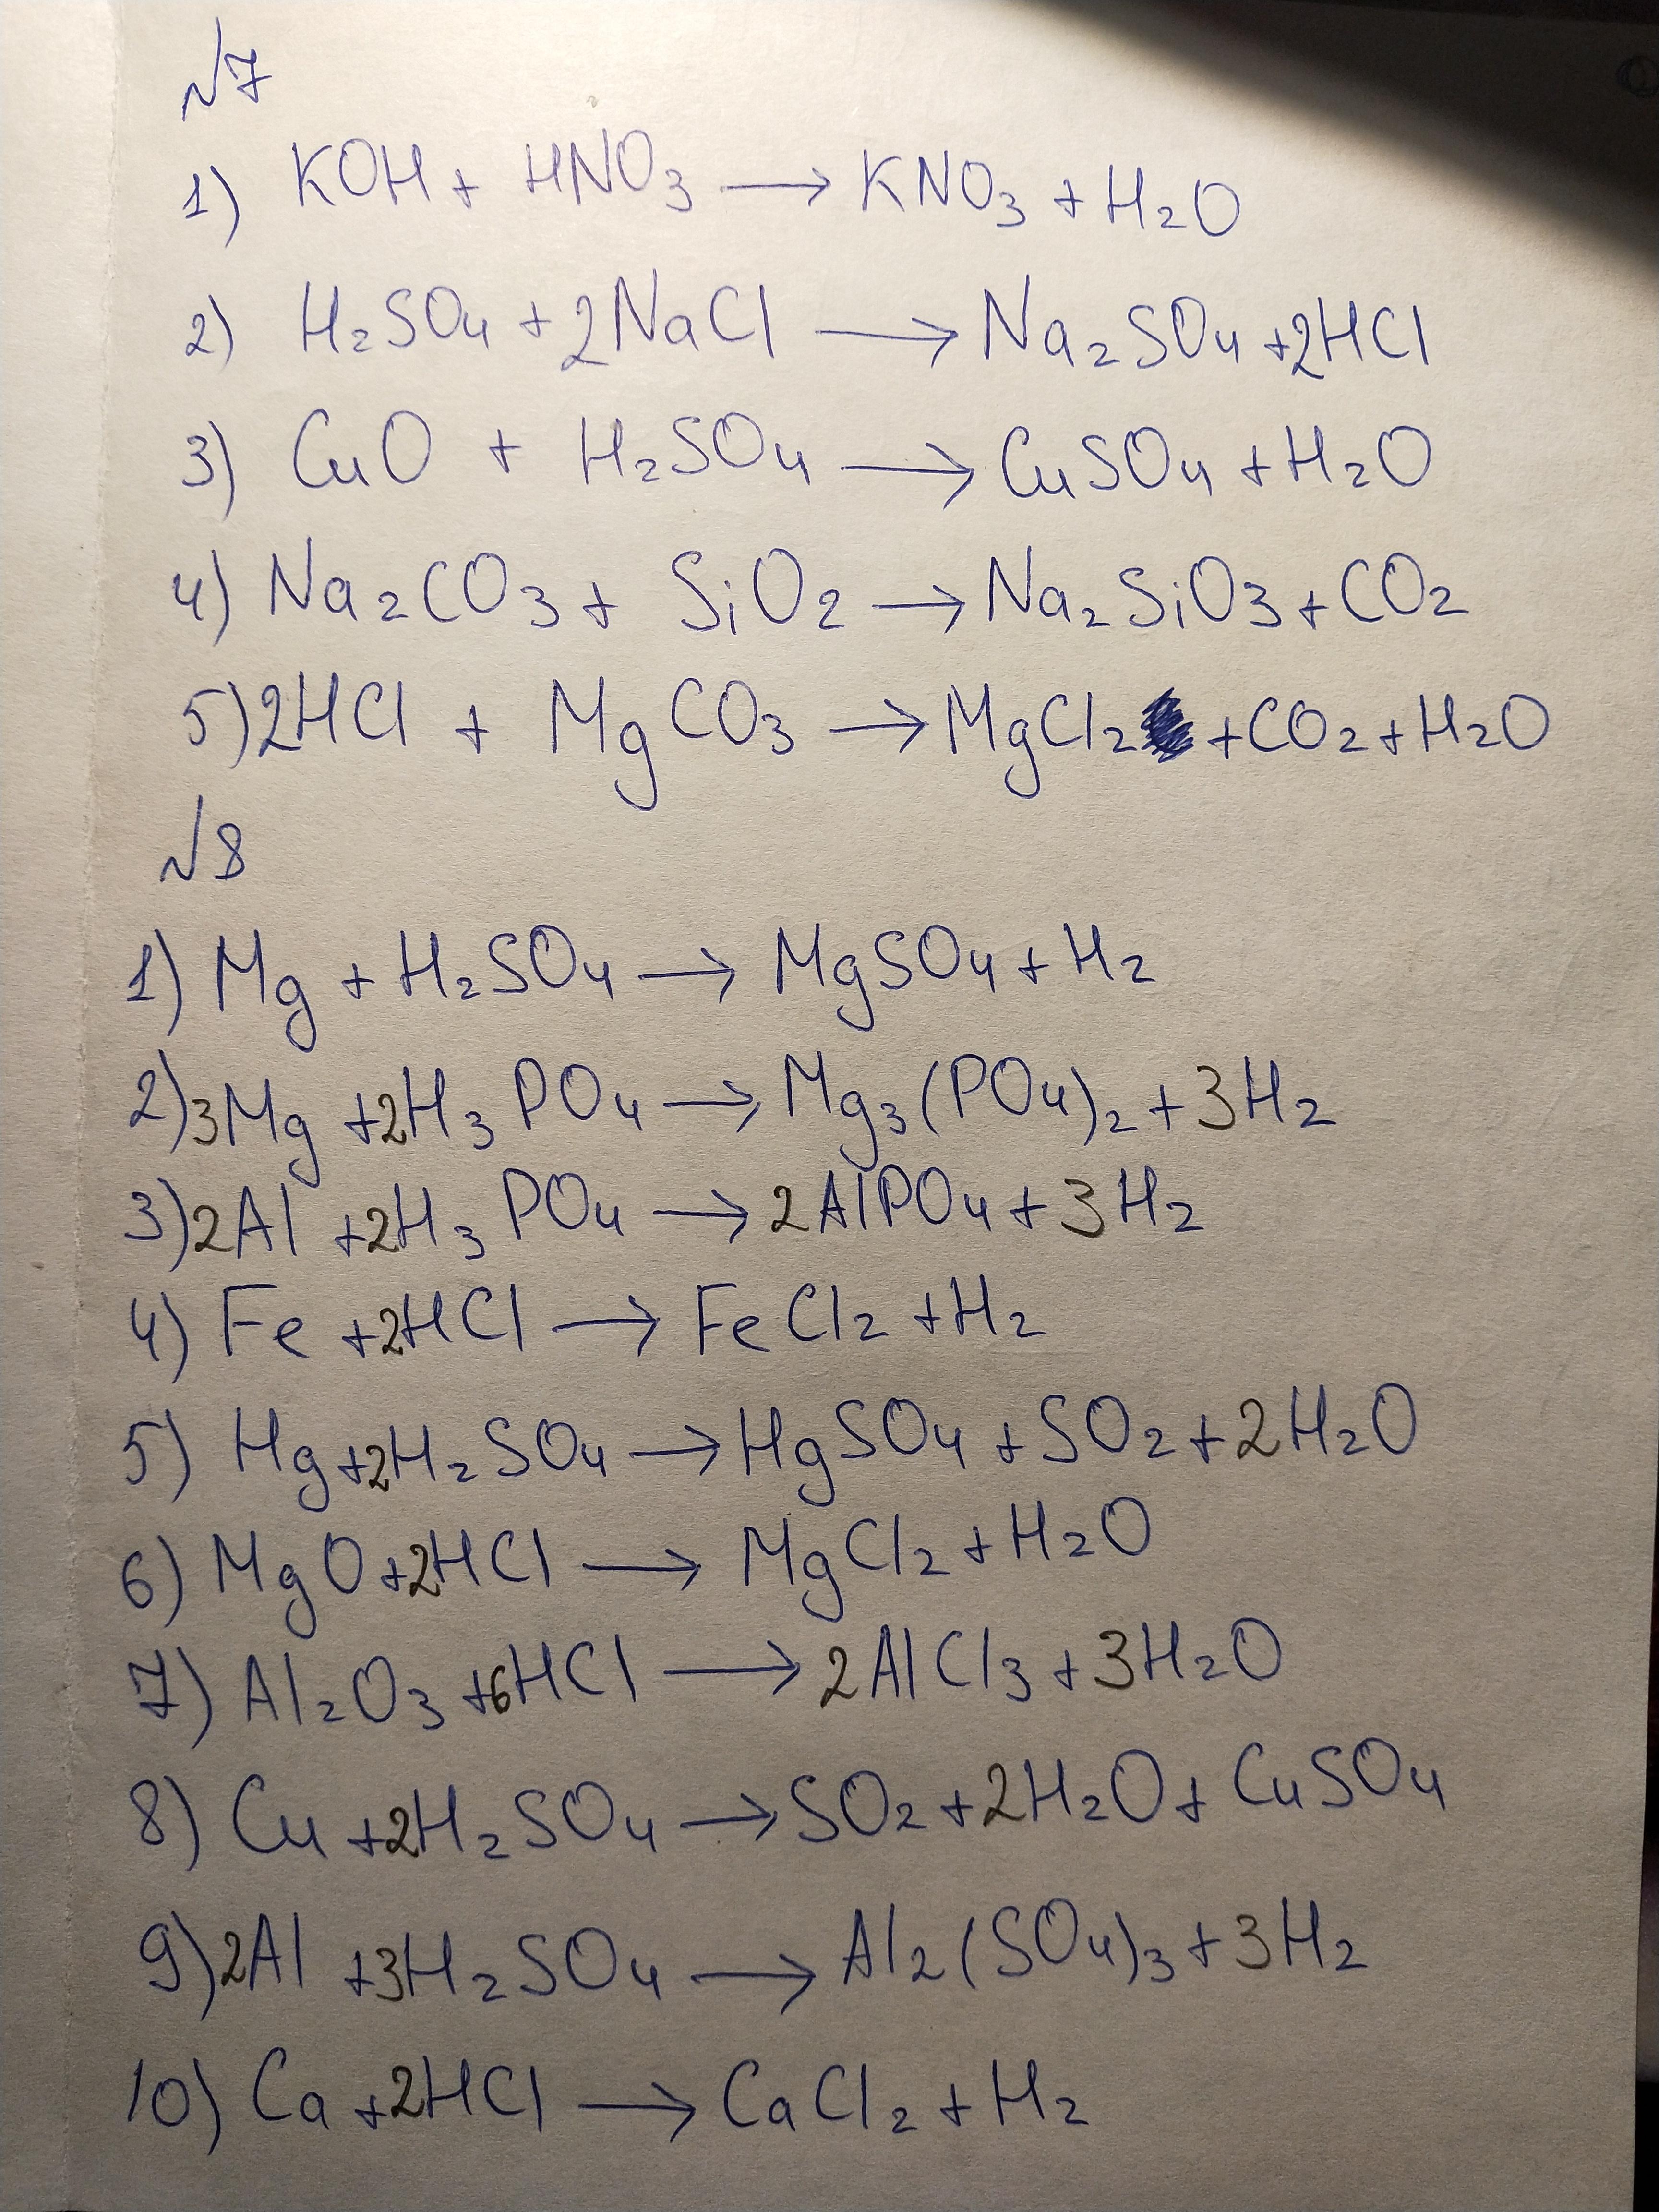 №7
1) KOH + HNO₃ → KNO₃ + H₂O
2) H₂SO₄ + 2NaCl → Na₂SO₄ + 2HCl
3) CuO + H₂SO₄ → CuSO₄ + H₂O
4) Na₂CO₃ + SiO₂ → Na₂SiO₃ + CO₂
5) 2HCl + MgCO₃ → MgCl₂ + CO₂ + H₂O
№8
1) Mg + H₂SO₄ → MgSO₄ + H₂
2) 3Mg + 2H₃PO₄ → Mg₃(PO₄)₂ + 3H₂
3) 2Al + 2H₃PO₄ → 2AlPO₄ + 3H₂
4) Fe + 2HCl → FeCl₂ + H₂
5) Hg + 2H₂SO₄ → HgSO₄ + SO₂ + 2H₂O
6) MgO + 2HCl → MgCl₂ + H₂O
7) Al₂O₃ + 6HCl → 2AlCl₃ + 3H₂O
8) Cu + 2H₂SO₄ → SO₂ + 2H₂O + CuSO₄
9) 2Al + 3H₂SO₄ → Al₂(SO₄)₃ + 3H₂
10) Ca + 2HCl → CaCl₂ + H₂